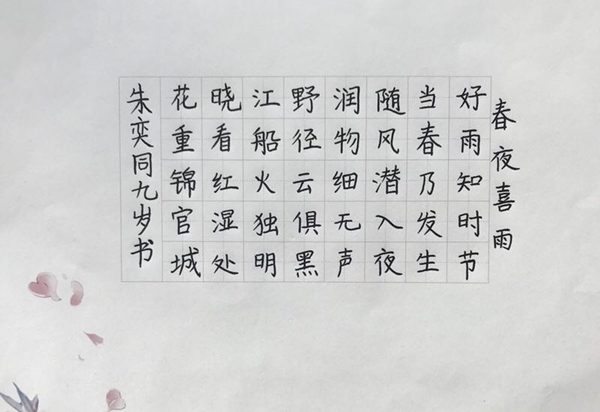 春夜喜雨
好雨知时节
当春乃发生
随风潜入夜
润物细无声
野径云俱黑
江船火独明
晓看红湿处
花重锦官城
朱奕同九岁书